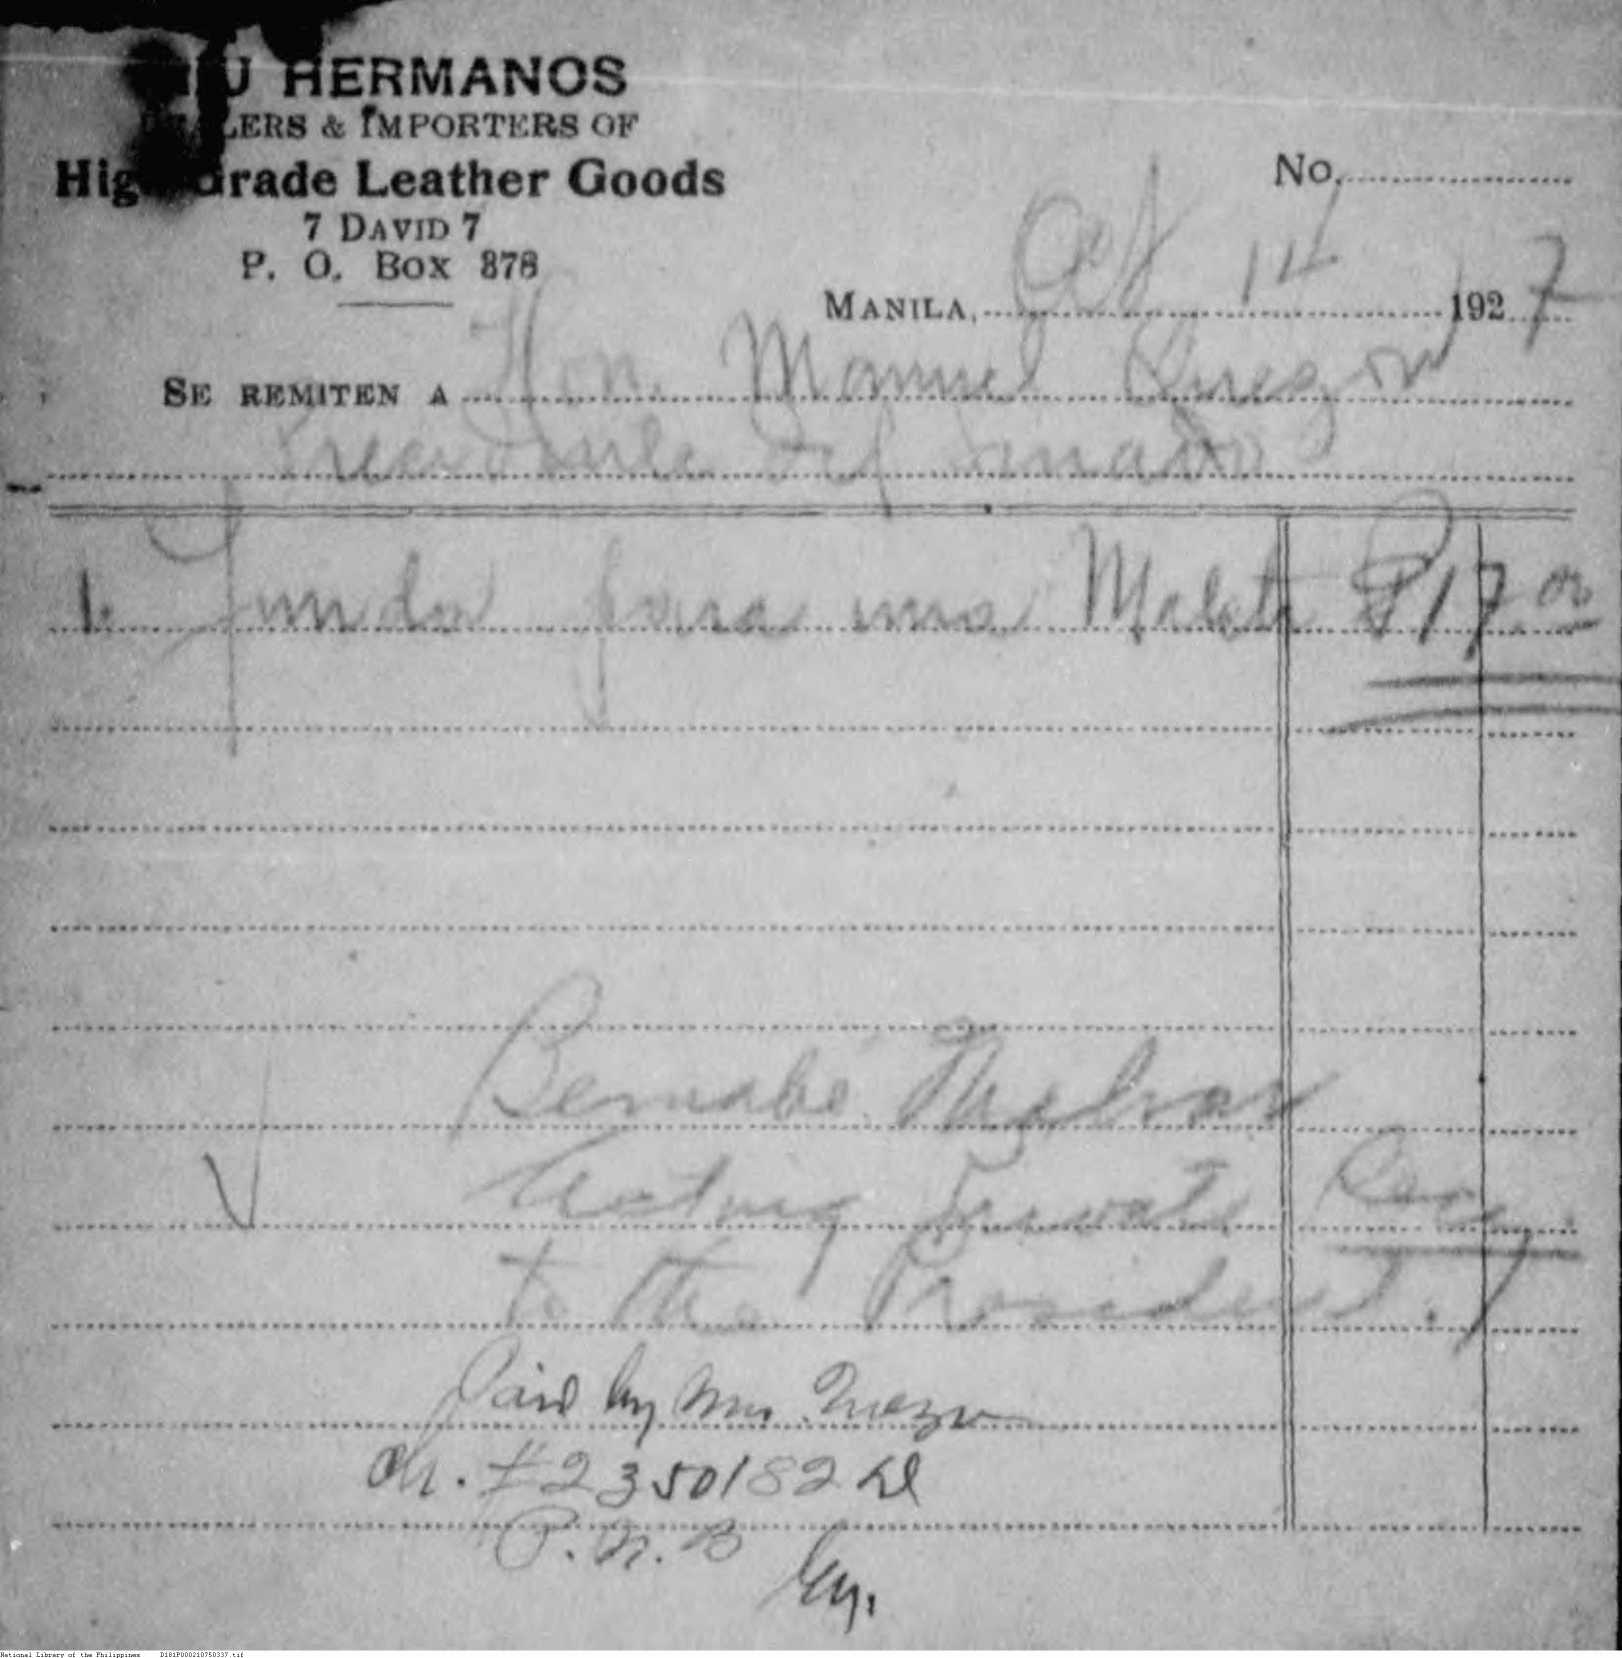 HERMANOS
& IMPORTERS OF
Leather Goods
7 DAVID 7
P. O. BOX 878
No.
MANILA, 14 1927
SE REMITEN A Hon. Manuel Quezon
Presidente del Senado
1. Funda para una Maleta ₱17.00
Bernabe
Acting Private Secy.
to the President.
Paid by Mr. Quezon
Ch. #2350182
P.N.B
National Library of the Philippines D181P000210750337.tif